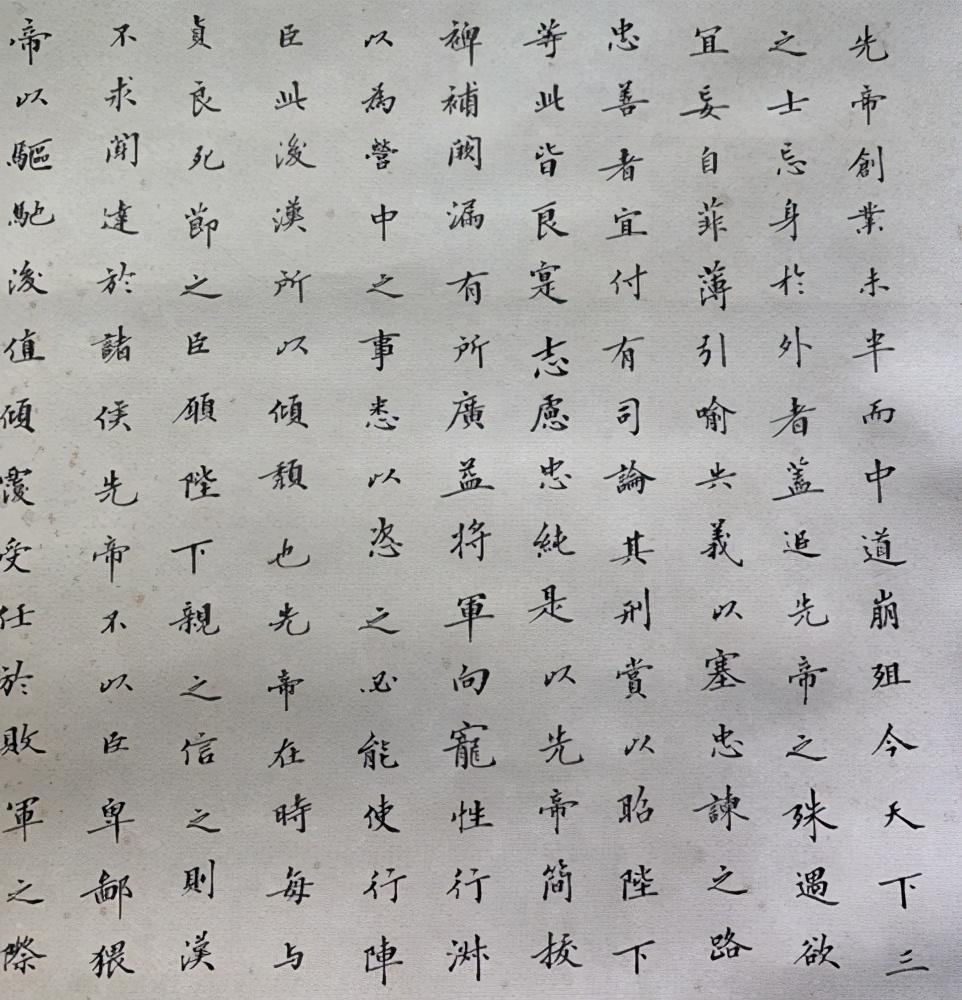 先帝創業未半而中道崩殂今天下三
之士忘身於外者蓋追先帝之殊遇欲
冝妄自菲薄引喻共義以塞忠諫之路
忠善者宜付有司論其刑賞以昭陛下
等此皆良寔志慮忠純是以先帝簡拔
裨補闕漏有所廣益将軍向寵性行淑
以為營中之事悉以恣之必能使行陣
臣此後漢所以傾頹也先帝在時每与
貞良死節之臣願陛下親之信之則漢
不求聞達於諸侯先帝不以臣卑鄙猥
帝以驅馳後值傾覆受任於敗軍之際